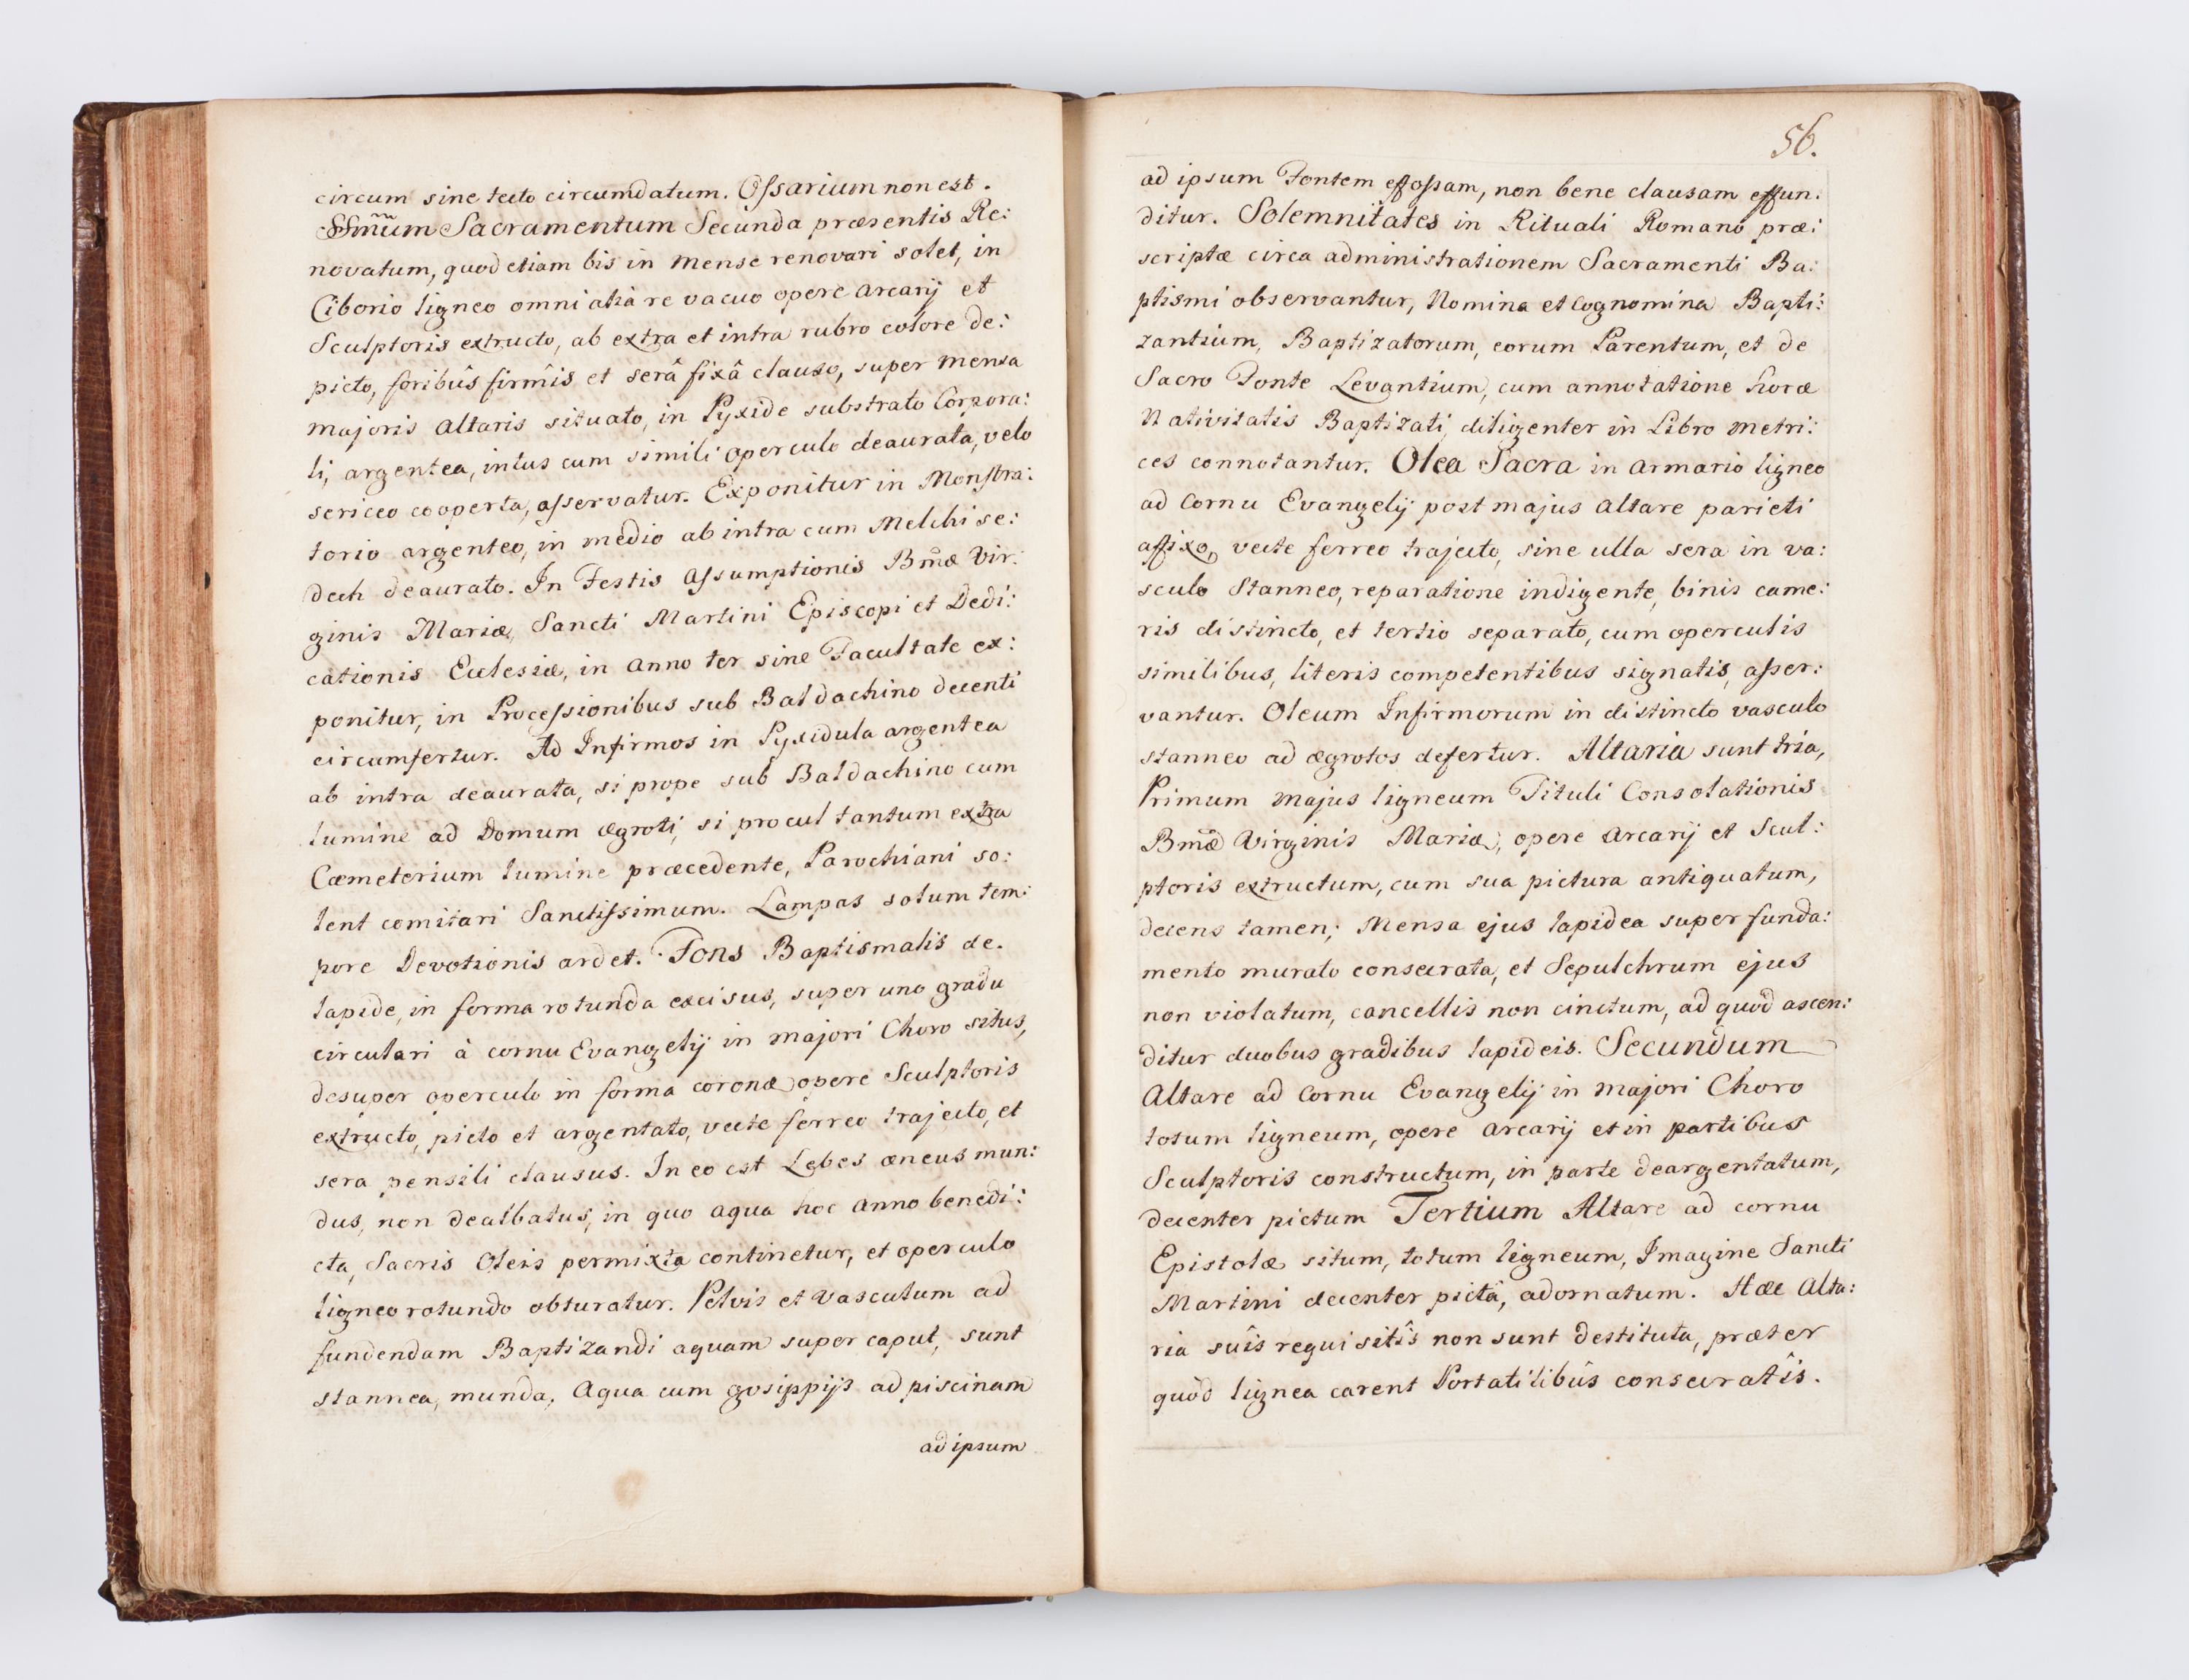 circum sine tecto circumdatum. Ossarium non est.
SSm̃um Sacramentum Secunda præsentis Re:
novatum, quod etiam bis in mense renovari solet, in
Ciborio ligneo omni aliâ re vacuo opere Arcarij et
Sculptoris extructo, ab extra et intra rubro colore de:
picto, foribûs firmîs et serâ fixâ clauso, super mensa
majoris Altaris situato, in Pyxide substrato Corpora:
li, argentea, intus cum simili operculo deaurata, velo
sericeo cooperta, asservatur. Exponitur in Monstra:
torio argenteo, in medio ab intra cum Melchise:
dech deaurato. In Festis Assumptionis Bm̃æ Vir:
ginis Mariæ, Sancti Martini Episcopi et Dedi:
cationis Ecclesiæ, in Anno ter sine Facultate ex:
ponitur, in Processionibus sub Baldachino decenti
circumfertur. Ad Infirmos in Pyxidula argentea
ab intra deaurata, si prope sub Baldachino cum
lumine ad Domum ægroti, si procul tantum extra
Cæmeterium lumine præcedente, Parochiani so:
lent comitari Sanctissimum. Lampas solum tem:
pore Devotionis ardet. Fons Baptismalis de
lapide, in forma rotunda excisus, super uno gradu
circulari à cornu Evangelij in majori Choro situs,
desuper operculo in forma coronæ opere Sculptoris
extructo, picto et argentato, vecte ferreo trajecto, et
sera pensili clausus. In eo est Lebes æneus mun:
dus, non dealbatus, in quo aqua hoc Anno benedi:
cta, Sacris Oleis permixta continetur, et operculo
ligneo rotundo obturatur. Pelvis et Vasculum ad
fundendam Baptizandi aquam super caput, sunt
stannea, munda, Aqua cum gosippijs ad piscinam
ad ipsum
56.
ad ipsum Fontem effossam, non bene clausam effun:
ditur. Solemnitates in Rituali Romano præ:
scriptæ circa administrationem Sacramenti Ba:
ptismi observantur, Nomina et Cognomina Bapti:
zantium, Baptizatorum, eorum Parentum, et de
Sacro Fonte Levantium, cum annotatione horæ
Nativitatis Baptizati, diligenter in Libro metri:
ces connotantur. Olea Sacra in armario ligneo
ad Cornu Evangelij post majus Altare parieti
affixo, vecte ferreo trajecto, sine ulla sera in va:
sculo Stanneo, reparatione indigente, binis came:
ris distincto, et tertio separato, cum operculis
similibus, literis competentibus signatis, asser:
vantur. Oleum Infirmorum in distincto vasculo
stanneo ad ægrotos defertur. Altaria sunt tria,
Primum majus ligneum Tituli Consolationis
Bm̃æ Virginis Mariæ, opere Arcarij et Scul:
ptoris extructum, cum sua pictura antiquatum,
decens tamen; Mensa ejus lapidea super funda:
mento murato consecrata, et Sepulchrum ejus
non violatum, cancellis non cinctum, ad quod ascen:
ditur duobus gradibus lapideis. Secundum
Altare ad Cornu Evangelij in majori Choro
totum ligneum, opere Arcarij et in partibus
Sculptoris constructum, in parte deargentatum,
decenter pictum Tertium Altare ad cornu
Epistolæ situm, totum ligneum, Imagine Sancti
Martini decenter pictâ, adornatum. Hæc Alta:
ria suîs requisitîs non sunt destituta, præter
quòd lignea carent Portatilibûs consecratîs.